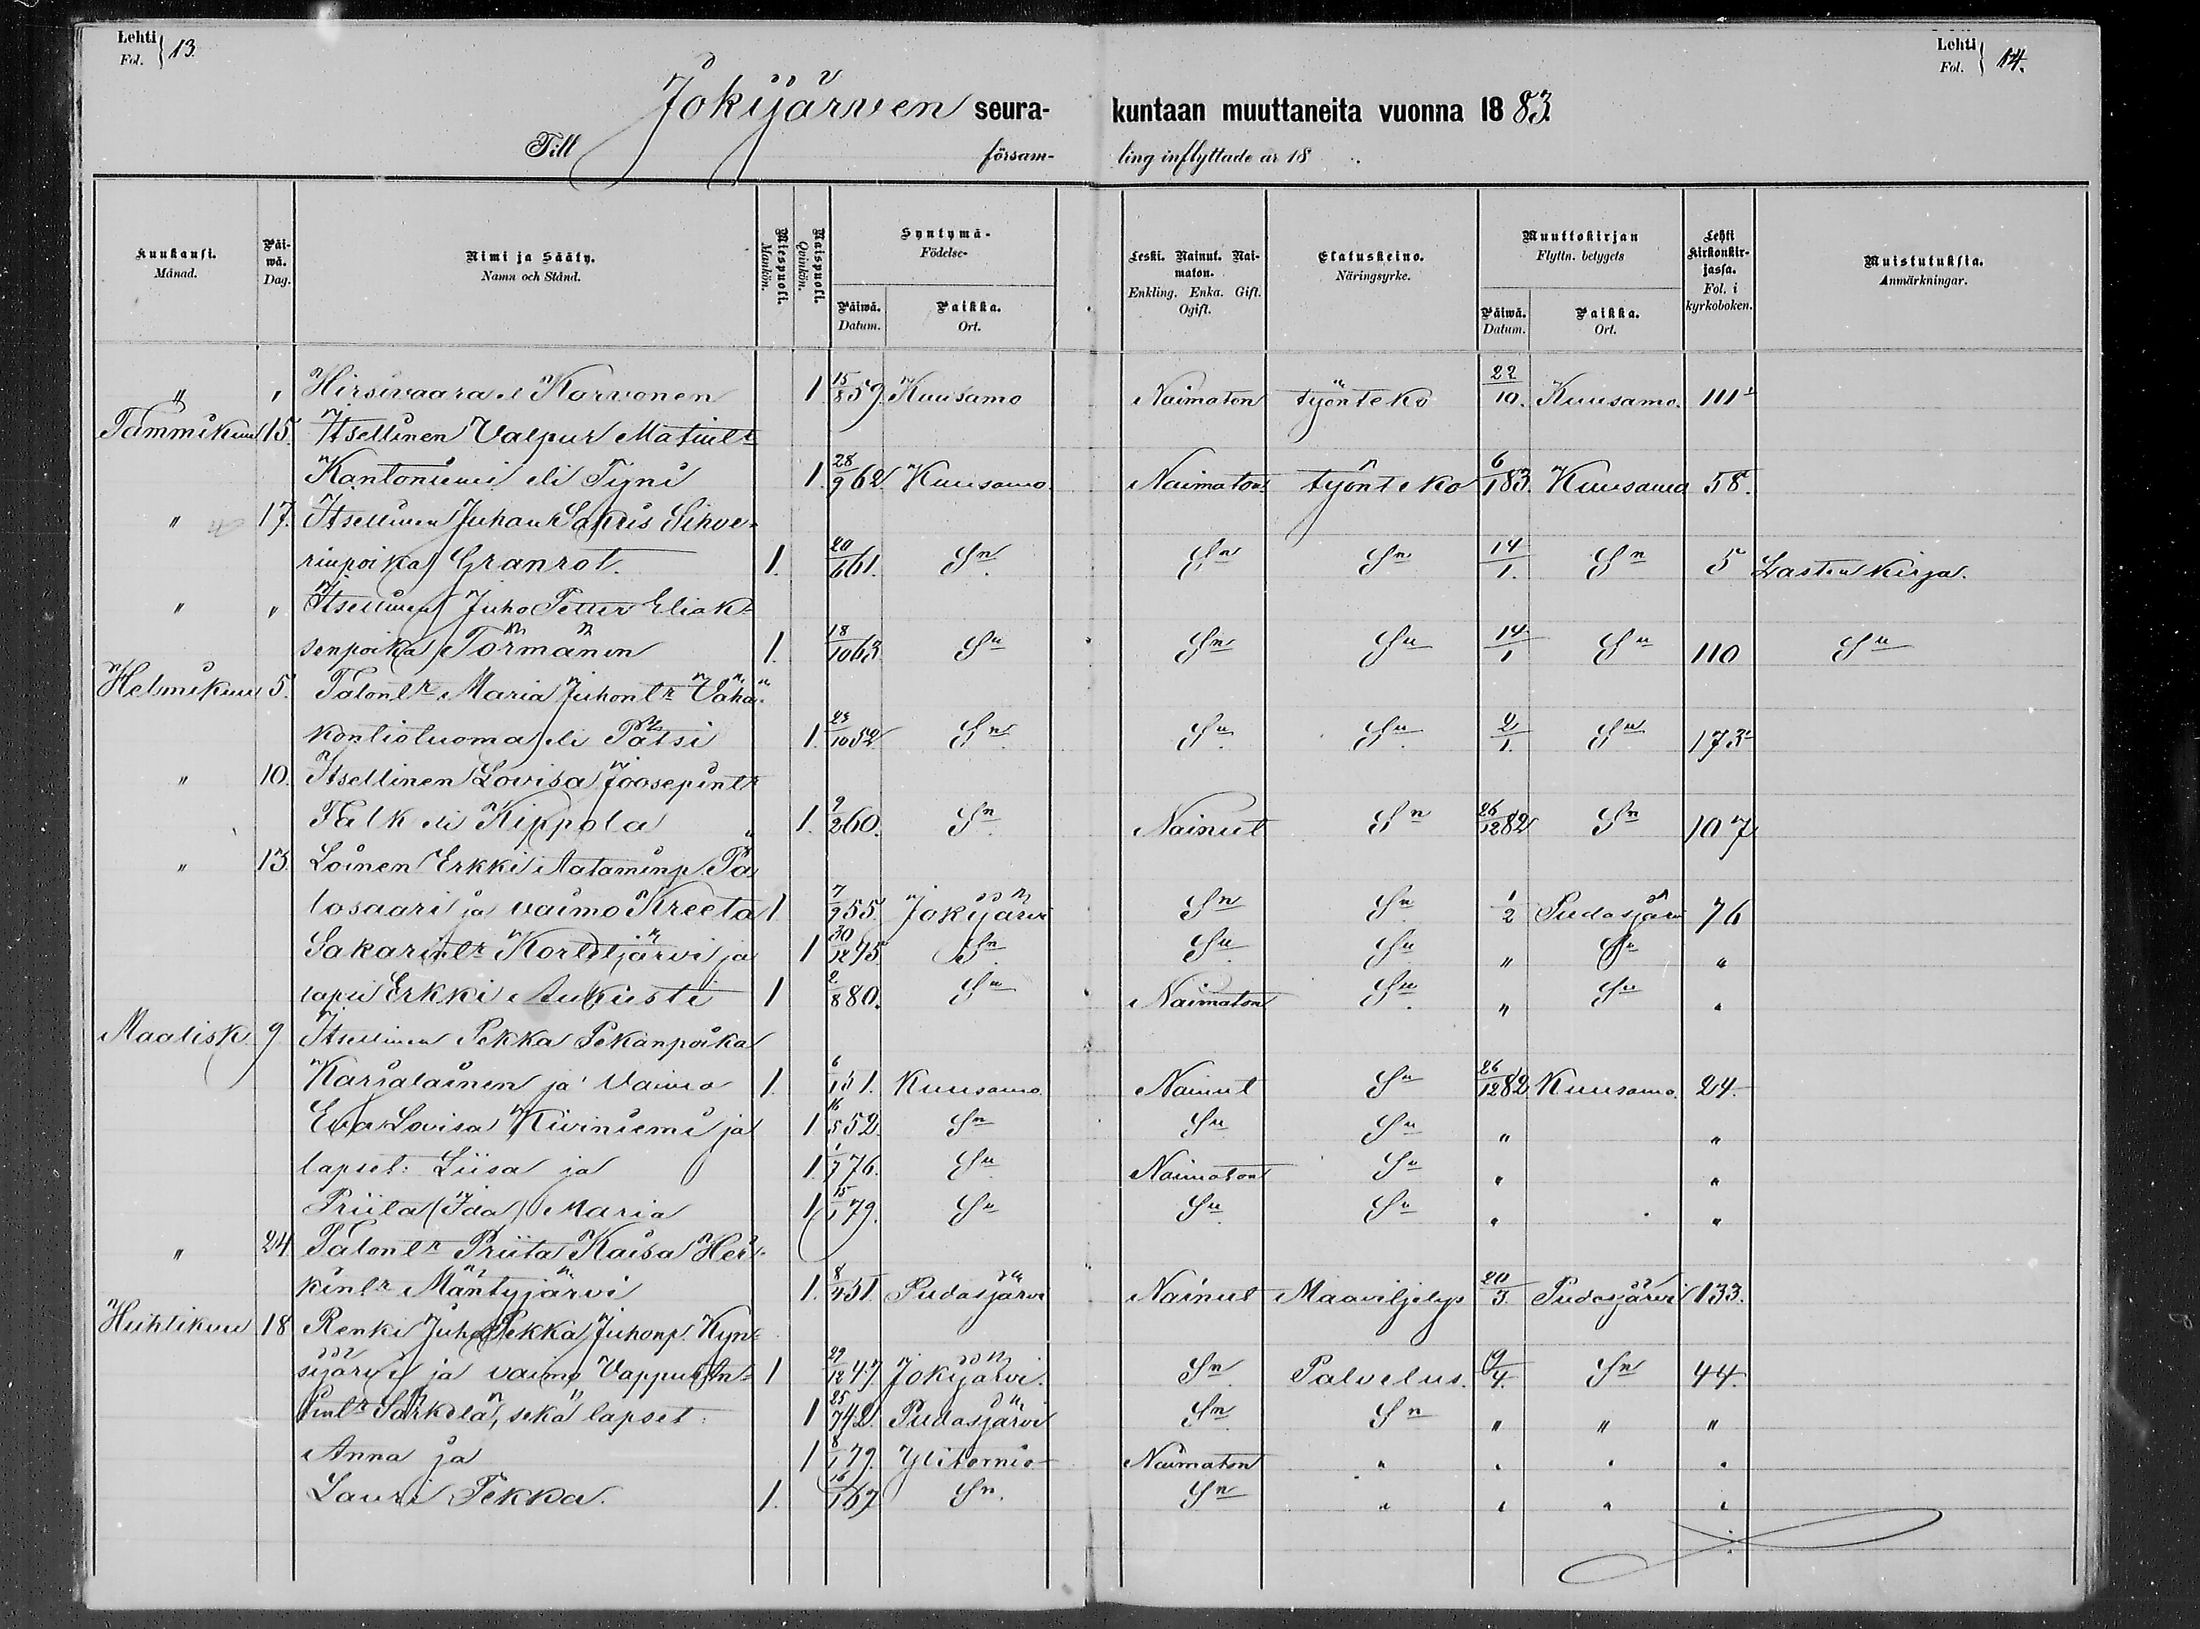 Lehti Fol. 13. Lehti Fol. 14.
Jokijärven seura- kuntaan muuttaneita vuonna 1883.
Till församling inflyttade år 18
Kuukausi. Månad. Päiwä. Dag. Nimi ja Sääty. Namn och Stånd. Miespuoli. Mankön. Naispuoli. Qvinkön. Syntymä- Födelse- Päiwä. Datum. Paikka. Ort. Leski. Nainut. Naimaton. Enkling. Enka. Gift. Ogift. Elatuskeino. Näringsyrke. Muuttokirjan Flyttn. betygets Päiwä. Datum. Paikka. Ort. Lehti kirkonkirjassa. Fol. i kyrkoboken. Muistutuksia. Anmärkningar.
" " Hirsivaara l Korvonen 1 15/8 59. Kuusamo Naimaton työnteko 22/10. Kuusamo. 111
Tammikuu 15. Itsellinen Valpur Matintr
Kantoniemi eli Tyni 1. 28/9 62 Kuusamo. Naimaton työnteko 6/1 83. Kuusamo 58.
" 17. Itsellinen Juhan Sakris Sihve-
rinpoika Granrot. 1. 20/6 61. Sn Sn Sn 14/1. Sn 5 Lasten kirja.
" " Itsellinen Juho Petter Eliak-
senpoika Törmänen 1. 18/10 63 Sn Sn Sn 14/1 Sn 110 Sn
Helmikuu 5. Talontr Maria Juhontr Vähä-
kontioluoma eli Pätsi 1. 23/10 52 Sn Sn Sn 2/1. Sn 173
" 10. Itsellinen Lovisa Joosepintr
Falk eli Kippola 1. 9/2 60. Sn Nainut Sn 26/12 82 Sn 107
" 13. Loinen Erkki Aataminp. Pa
losaari ja vaimo Kreeta 1 7/9 55. Jokijärvi Sn Sn 1/2 Pudasjärvi 76
Sakarintr Korttijärvi ja 1 30/12 95. Sn Sn Sn " Sn "
lapsi Erkki Aukusti 1 2/8 80. Sn Naimaton Sn " Sn "
Maalisk. 9 Itsellinen Pekka Pekanpoika
Karjalainen ja vaimo 1. 6/1 51. Kuusamo. Nainut Sn 26/12 82 Kuusamo. 24.
Eva Lovisa Kiviniemi ja 1 16/5 52. Sn Sn Sn " "
lapset: Liisa ja 1. 1/7 76. Sn Naimaton Sn " "
Priita (Ida) Maria 1 15/1 79. Sn Sn Sn " "
" 24 Talontr Priita Kaisa Hei-
kintr Mäntyjärvi 1. 8/4 51. Pudasjärvi Nainut Maaviljelys 20/3. Pudasjärvi 133.
Huhtikuu 18 Renki Juho Pekka Juhonp. Kyn-
sijärvi ja vaimo Vappu An- 1 29/12 47 Jokijärvi. Sn Palvelus. 9/4. Sn 44.
tintr Särkelä, sekä lapset: 1 25/7 42. Pudasjärvi Sn Sn " " "
Anna ja 1 8/1 79. Ylitornio Naimaton " " " "
Lauri Pekka. 1. 16/1 67 Sn. Sn " " " "